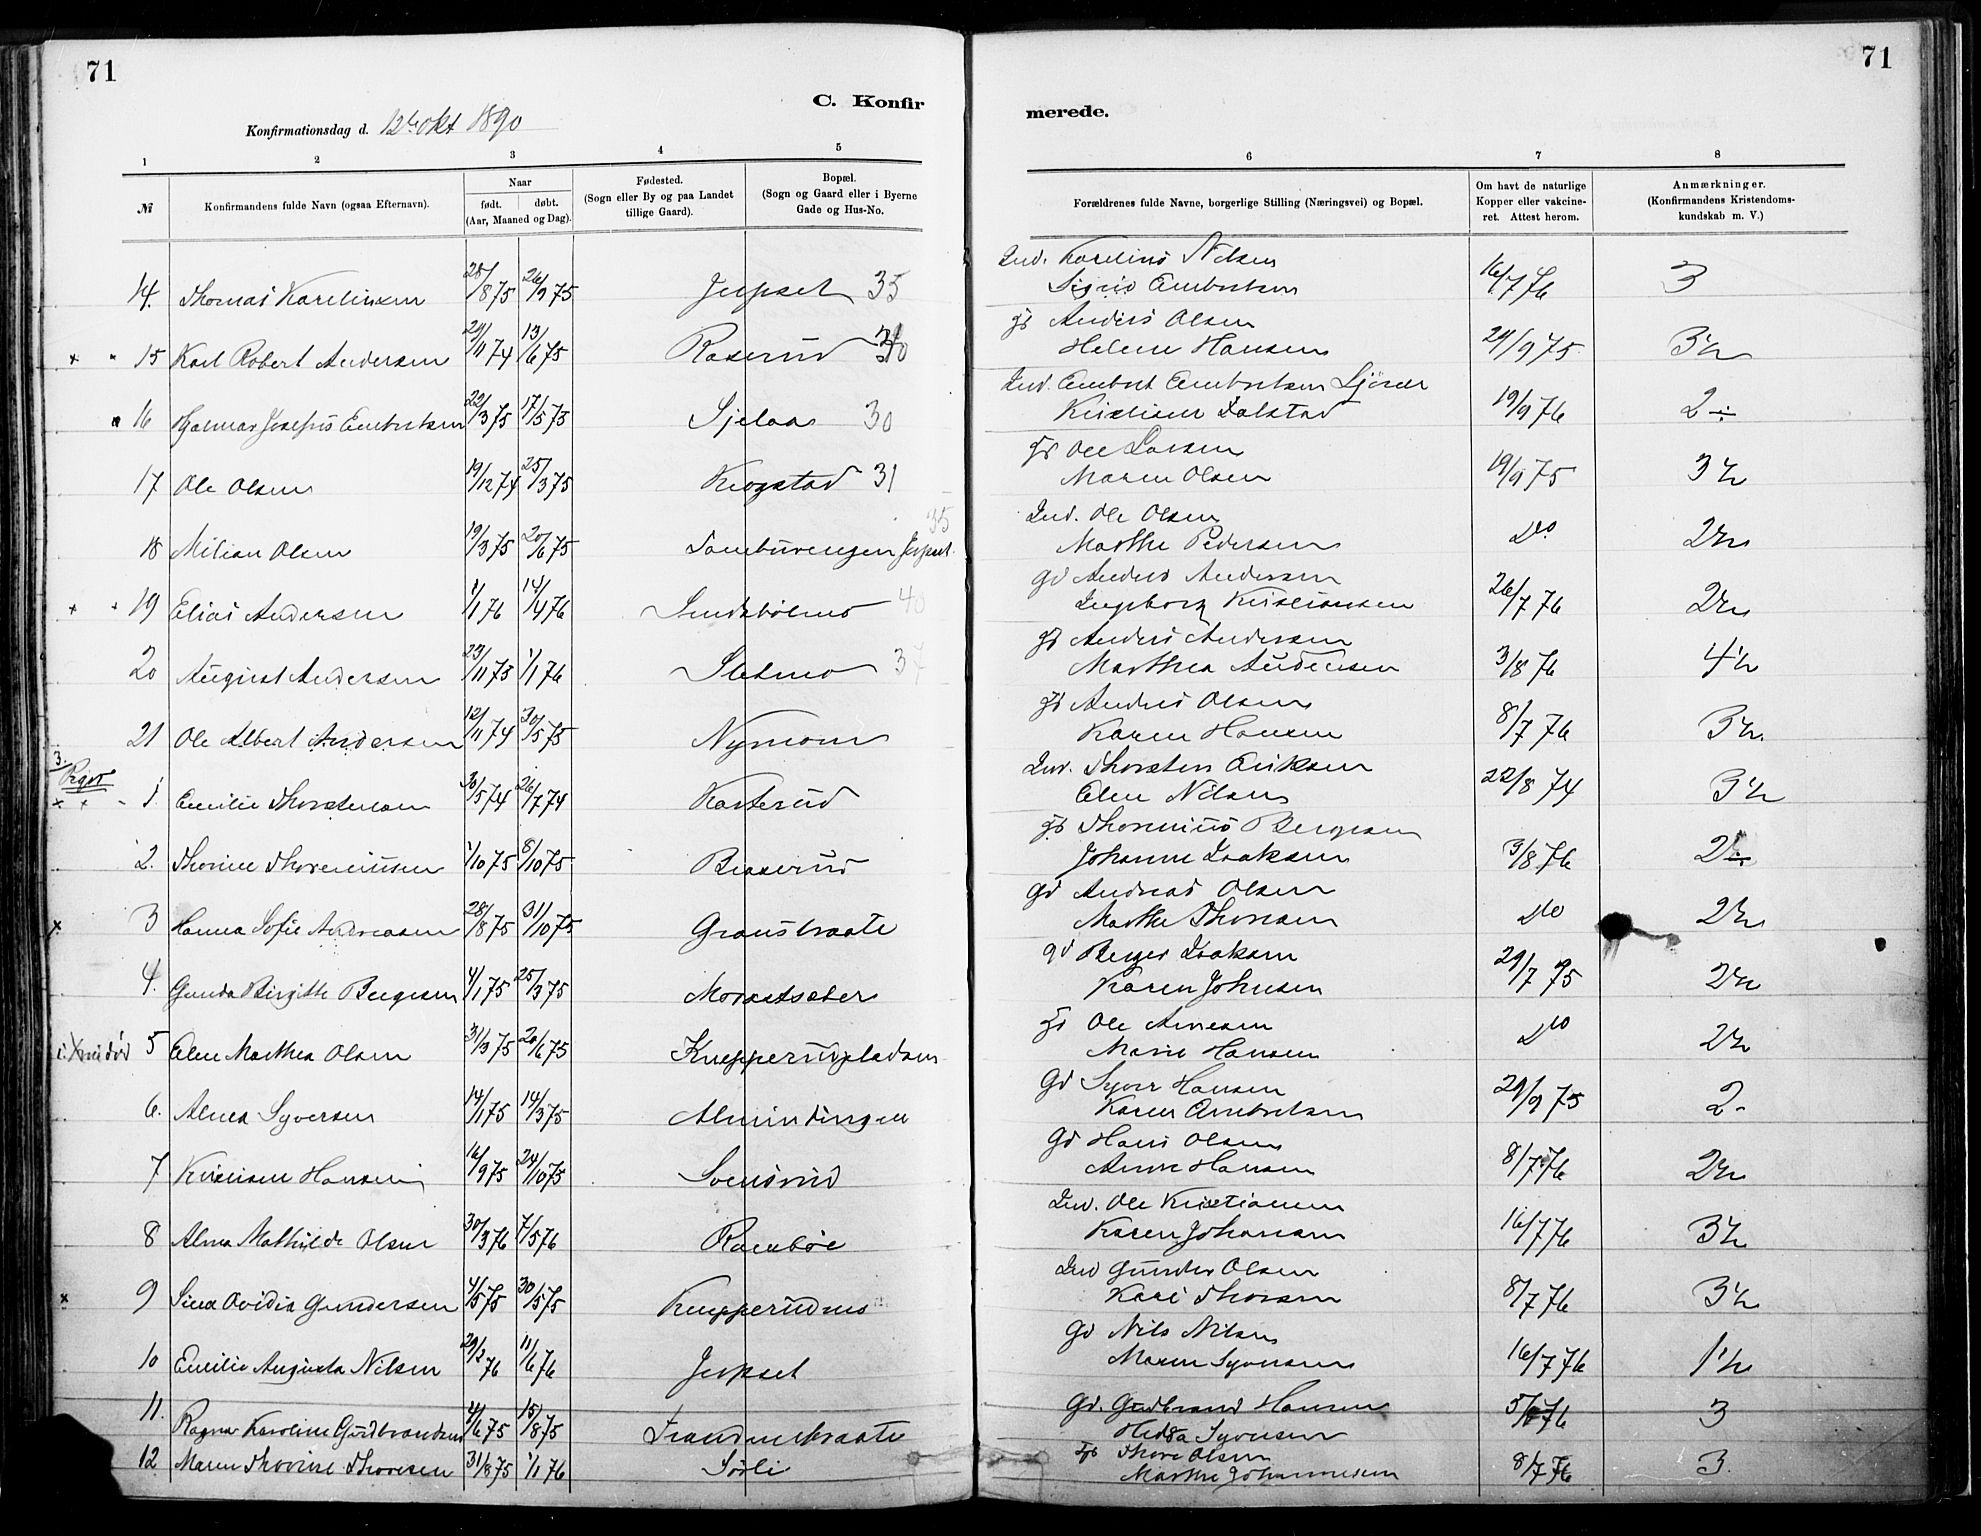 71
71
C. Konfir
merede.
Konfirmationsdag d. 12te Okt 1890
1 2 3 4 5 6 7 8
№
Konfirmandens fulde Navn (ogsaa Efternavn).
Naar
født. døbt.
(Aar, Maaned og Dag).
Fødested.
(Sogn eller By og paa Landet
tillige Gaard).
Bopæl.
(Sogn og Gaard eller i Byerne
Gade og Hus-No.
Forældrenes fulde Navne, borgerlige Stilling (Næringsvei) og Bopæl.
Om havt de naturlige
Kopper eller vakcine-
ret. Attest herom.
Anmærkninger.
(Konfirmandens Kristendoms-
kundskab m. V.)
14. Thomas Karelinsen 28/8 75 26/9 75 Jerpset 35 Ind. Karelius Nilsen 16/7 76 3
Sigrid Embretsen
15 Karl Robert Andersen 29/11 74 13/6 75 Raserud Gb Anders Olsen 29/9 75 3½
Helene Hansen
16 Hjalmar Josefus Embretsen 22/3 75 17/5 75 Sjelaas 30 Ind. Embret Embretsen 19/9 76 2÷
Kristine Dalstad
17 Ole Olsen 19/12 74 25/3 75 Krogstad 31 Gb Ole Larsen 19/9 75 3½
Maren Olsen
18 Milian Olsen 19/3 75 20/6 75 Jerpset 35 Ind. Ole Olsen Do 2½
Marthe Pedersen
19 Elias Andersen 1/1 76 14/4 76 40 Gd Anders Andersen 26/7 76 2½
Ingeborg Kristiansen
20 August Andersen 23/11 75 1/1 76 Sletmo 37 Gb Anders Andersen 3/8 76 4½
Marthea Andersen
21 Ole Albert Andersen 12/11 74 30/5 75 Nymoen Gb Anders Olsen 8/7 76 3½
Karen Hansen
Piger
1. Emilie Thorstensen 30/5 74 26/7 74 Kasterud Ind. Thorsten Eriksen 22/8 74 3½
Elen Nilsen
2. Thorine Thoreniusen 1/10 75 8/10 75 Braserud Gb Thorenius Bergesen 3/8 76 2÷
Johanne Isaksen
3 Hanna Sofie Andreasen 28/8 75 31/10 75 Gransbraate Gd Andreas Olsen Do 2½
Marthe Thoresen
4. Gunda Birgitte Bergesen 4/1 75 25/3 75 Morastsæter Gd Berger Isaksen 29/7 75 2½
Karen Johnsen
5 Elen Marthea Olsen 31/3 75 20/6 75 Knapperudpladsen Gb Ole Arnesen Do 2½
Marie Hansen
6. Alma Syversen 14/1 75 14/3 75 Almindingen Gd Syver Hansen 29/9 75 2
Karen Embretsen
7 Kristine Hansen 16/9 75 24/10 75 Svensrud Gd Hans Olsen 8/7 76 2½
Anne Hansen
8 Alma Mathilde Olsen 30/3 76 7/5 76 Rambøl Ind. Ole Kristiansen 16/7 76 3½
Karen Johansen
9 Sina Ovidia Gundersen 4/5 75 30/5 75 Knapperudnes Ind Gunder Olsen 8/7 76 3½
Kari Thoresen
10 Emilie Augusta Nilsen 29/2 76 11/6 76 Jerpset Gd Nils Nilsen 16/7 76 1½
Maren Syversen
11. Ragna Karoline Gudbrandsen 4/6 75 15/8 75 Gd. Gudbrand Hansen 3
Hedda Syversen
12 Maren Thorine Thoresen 31/8 75 1/1 76 Sørli Gb Thore Olsen 8/7 76 3.
Marthe Johannesen